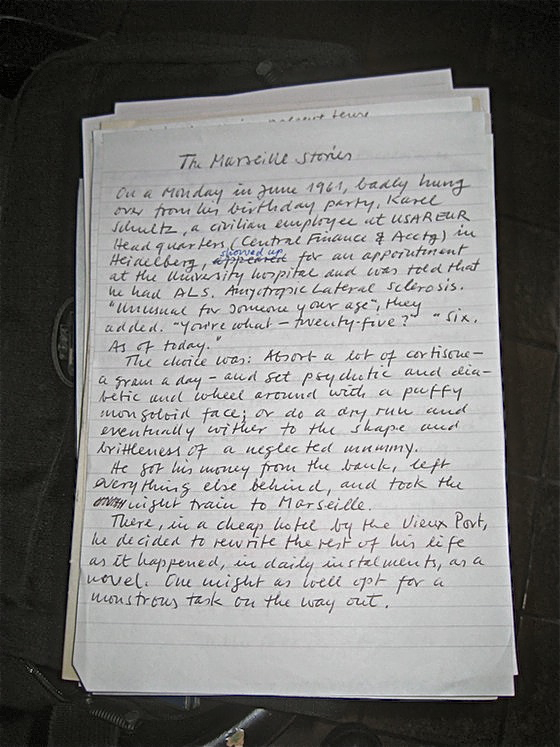 present tense
The Marseille Stories
On a Monday in June 1961, badly hung
over from his birthday party, Karel
Schultz, a civilian employee at USAREUR
Headquarters (Central Finance & Acctg) in
Heidelberg, appeared showed up for an appointment
at the University hospital and was told that
he had ALS. Amyotropic Lateral Sclerosis.
"Unusual for someone your age", they
added. "You're what – twenty-five?" "Six.
As of today."
The choice was: Absorb a lot of cortisone –
a gram a day – and get psychotic and dia-
betic and wheel around with a puffy
mongoloid face; or do a dry run and
eventually wither to the shape and
brittleness of a neglected mummy.
He got his money from the bank, left
everything else behind, and took the
night train to Marseille.
There, in a cheap hotel by the Vieux Port,
he decided to rewrite the rest of his life
as it happened, in daily instalments, as a
novel. One might as well opt for a
monstrous task on the way out.